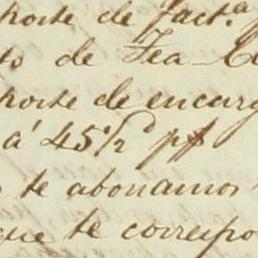 porte de fact.ª
to de Fea
porte de encarg
á 45 1/2 d p
te abonamos
que te correspo